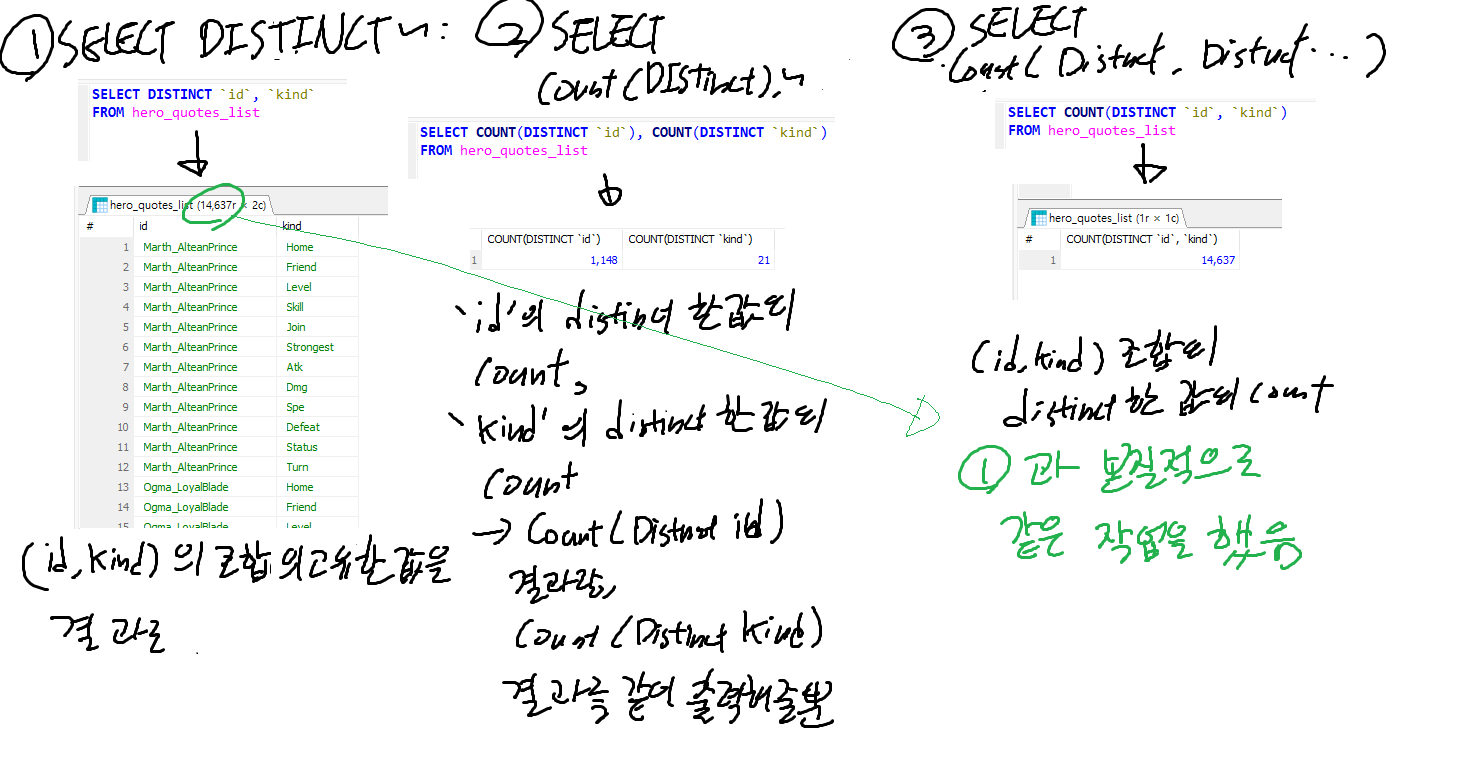 ① SELECT DISTINCT ~ :
SELECT DISTINCT `id`, `kind`
FROM hero_quotes_list
hero_quotes_list (14,637r × 2c)
# id kind
1 Marth_AlteanPrince Home
2 Marth_AlteanPrince Friend
3 Marth_AlteanPrince Level
4 Marth_AlteanPrince Skill
5 Marth_AlteanPrince Join
6 Marth_AlteanPrince Strongest
7 Marth_AlteanPrince Atk
8 Marth_AlteanPrince Dmg
9 Marth_AlteanPrince Spe
10 Marth_AlteanPrince Defeat
11 Marth_AlteanPrince Status
12 Marth_AlteanPrince Turn
13 Ogma_LoyalBlade Home
14 Ogma_LoyalBlade Friend
15 Ogma_LoyalBlade Level
(id, kind) 의 조합의 고유한 값을
결과로
② SELECT
Count(DISTinct), ~
SELECT COUNT(DISTINCT `id`), COUNT(DISTINCT `kind`)
FROM hero_quotes_list
COUNT(DISTINCT `id`) COUNT(DISTINCT `kind`)
1 1,148 21
`id'의 distinct 한 값의
Count,
`kind'의 distinct 한 값의
Count
→ Count(Distinct id)
결과랑,
Count(Distinct kind)
결과를 같이 출력해줄뿐
③ SELECT
Count( Distinct, Distinct ... )
SELECT COUNT(DISTINCT `id`, `kind`)
FROM hero_quotes_list
hero_quotes_list (1r × 1c)
# COUNT(DISTINCT `id`, `kind`)
1 14,637
(id, kind) 조합의
distinct 한 값의 count
① 과 본질적으로
같은 작업을 했음